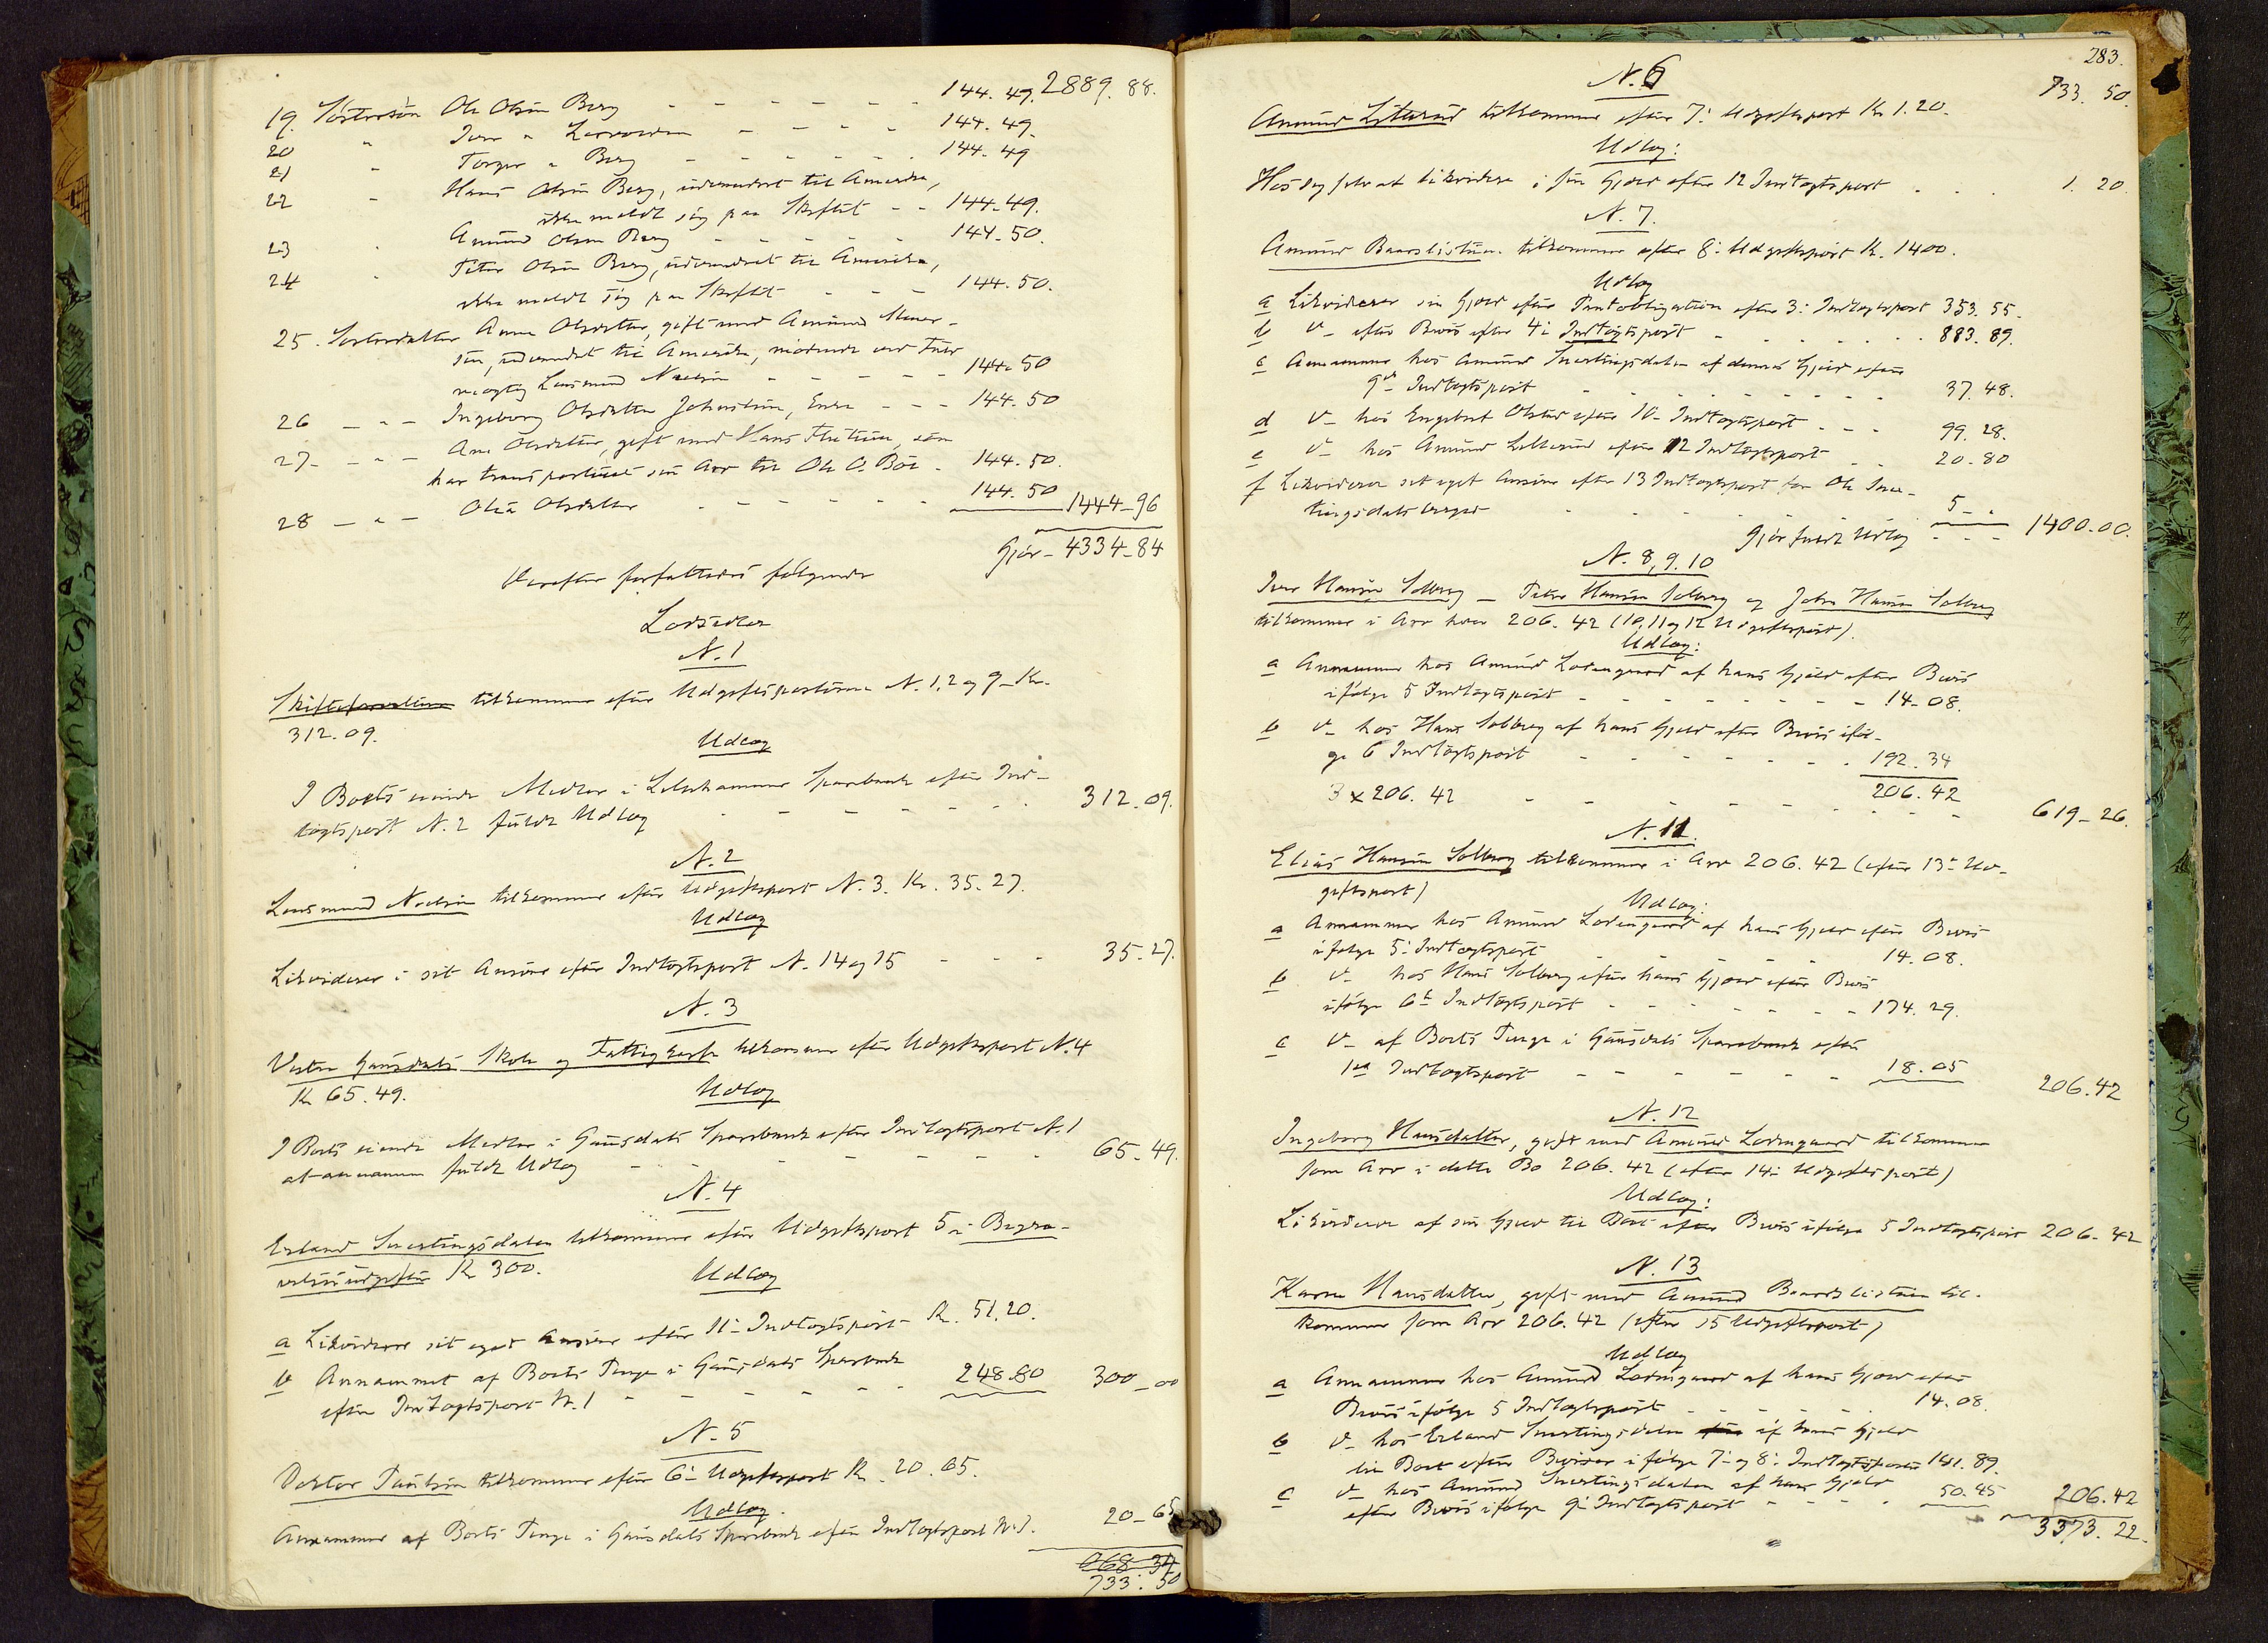 2889. 88.
19. Søstersøn Ole Olsen Berg - - - - - - 144. 49.
20 " Iver " - - - - 144. 49.
21 " Torger " Berg - - - - - - 144. 49
22 " Hans Olsen Berg, udvandret til Amerika,
ikke meldt sig paa Skiftet - - 144. 49.
23 " Amund Olsen Berg - - - - - 144. 50.
24 " Peter Olsen Berg, udvandret til Amerika,
ikke meldt sig paa Skiftet - - - 144. 50.
25. Søsterdatter Anne Olsdatter, gift med Amund
sen, udvandret til Amerika, mødende ved Fuld
mægtig Lensmand Nielsen - - - - - 144. 50
26 - " - Ingeborg Olsdatter Johnstuen, Enke - - - 144. 50
27 - " - Ane Olsdatter, gift med Hans, som
har transporteret sin Arv til Ole O. Bøe - 144. 50.
28 - " - Olea Olsdatter - - - - - 144. 50 1444-96
Gjør - 4334-84
Derefter forfattedes følgende
Lodsedler
N. 1
Skifteforvalteren tilkommer efter Udgiftsposterne N. 1, 2 og 9 - Kr.
312. 09.
Udlæg
I Boets eiende Midler i Lillehammer Sparebank efter Ind-
tægtspost N. 2 fuldt Udlæg - - - - - - 312. 09.
N. 2
Lensmand Nielsen tilkommer efter Udgiftspost N. 3. Kr. 35. 27.
Udlæg
Likviderer i sit Ansvar efter Indtægtspost N. 14 og 15 - - - 35. 27.
N. 3
Vestre Gausdals Skole og Fattigkasse tilkommer efter Udgiftspost N. 4
Kr 65. 49.
Udlæg
I Boets eiende Midler i Gausdals Sparebank efter Indtægtspost N. 1
at annamme fuldt Udlæg - - - - - - - 65. 49.
N. 4
Erland Svartingsdalen tilkommer efter Udgiftspost 5 i Begra-
velsesudgifter Kr 300.
Udlæg
a Likviderer sit eget Ansvar efter 11te Indtægtspost Kr. 51. 20.
b Annammet af Boets Penge i Gausdals Sparebank
efter Indtægtspost N. 1 - - - - - - 248. 80 300-00
N. 5
Doktor Paulsen tilkommer efter 6te Udgiftspost Kr. 20. 65.
Udlæg.
Annammer af Boets Penge i Gausdals Sparebank efter Indtægtspost N. 1. 20-65
733. 50
283.
733. 50.
N. 6
Amund Lillerud tilkommer efter 7. Udgiftspost Kr 1. 20.
Udlæg:
Hos sig selv at likvidere i sin Gjæld efter 12 Indtægtspost - - - 1. 20
N. 7.
Amund Baarslistuen tilkommer efter 8. Udgiftspost Kr. 1400.
Udlæg
a Likviderer sin Gjæld efter Pantobligation efter 3. Indtægtspost 353. 55.
b d- efter Bevis efter 4. Indtægtspost - - - - - - 883. 89.
c Annammer hos Amund Svartingsdalen af dennes Gjæld efter
9de Indtægtspost - - - - - - - - 37. 48.
d d- hos Engebret Olstad efter 10- Indtægtspost - - - 99. 28.
e d- hos Amund Lillerud efter 12 Indtægtspost - - 20. 80
f Likviderer sit eget Ansvar efter 13 Indtægtspost for Ole Svar-
tingsdals - - - - - - 5 - .
Gjør fuldt Udlæg - - - 1400-00.
N. 8, 9. 10
Iver Hansen Solberg - Peter Hansen Solberg og John Hansen Solberg
tilkommer i Arv hver 206. 42 (10, 11 og 12 Udgiftspost).
Udlæg:
a Annammer hos Amund Lodengaard af hans Gjæld efter Bevis
ifølge 5 Indtægtspost - - - - - - - 14-08.
b d- hos Hans Solberg af hans Gjæld efter Bevis iføl-
ge 6 Indtægtspost - - - - - - 192. 34
206. 42
3 x 206. 42 - - - - - - - 619-26.
N. 11.
Elias Hansen Solberg tilkommer i Arv 206. 42 (efter 13. Ud-
giftspost)
Udlæg:
a Annammer hos Amund Lodengaard af hans Gjæld efter Bevis
ifølge 5. Indtægtspost - - - - - 14. 08.
b d- hos Hans Solberg efter hans Gjæld efter Bevis
ifølge 6te Indtægtspost - - - - - - 174. 29.
c d- af Boets Penge i Gausdals Sparebank efter
1ste Indtægtspost - - - - - - 18. 05
206. 42
N. 12
Ingeborg Hansdatter, gift med Amund Lodengaard tilkommer
som Arv i dette Bo 206. 42 (efter 14. Udgiftspost)
Udlæg:
Likviderer af sin Gjæld til Boet efter Bevis ifølge 5 Indtægtspost 206. 42
N. 13
Karen Hansdatter, gift med Amund Baarslistuen til-
kommer som Arv 206. 42 (efter 15 Udgiftspost)
Udlæg
a Annammer hos Amund Lodengaard af hans Gjæld efter
Bevis ifølge 5 Indtægtspost - - - - - 14. 08.
b d- hos Erland Svartingsdalen af hans Gjæld
til Boet efter Beviser ifølge 7- og 8. Indtægtsposter 141. 89.
c d- hos Amund Svartingsdalen af hans Gjæld
efter Bevis ifølge 9. Indtægtspost - - - - 50. 45 206. 42
3373. 22.